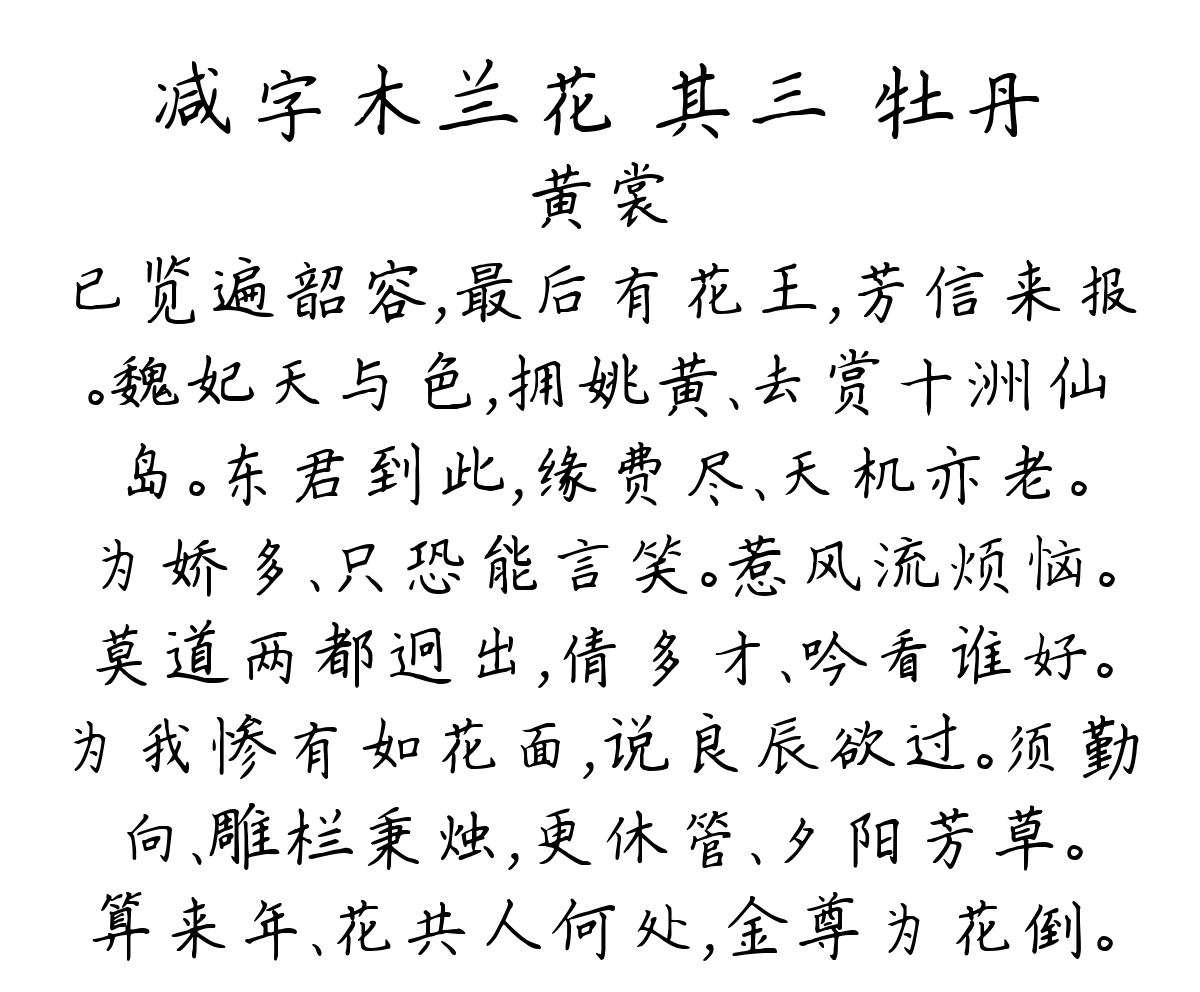 减字木兰花 其三 牡丹
黄裳
已览遍韶容,最后有花王,芳信来报
。魏妃天与色,拥姚黄、去赏十洲仙
岛。东君到此,缘费尽、天机亦老。
为娇多、只恐能言笑。惹风流烦恼。
莫道两都迥出,倩多才、吟看谁好。
为我惨有如花面,说良辰欲过。须勤
向、雕栏秉烛,更休管、夕阳芳草。
算来年、花共人何处,金尊为花倒。